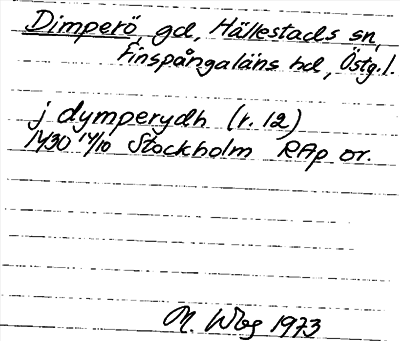 Dimperö gd, Hällestads sn,
Finspångaläns hd, Östg.l.
j dymperydh (r. 12)
1430 14/10 Stockholm RAp or.
M. Wbg 1973